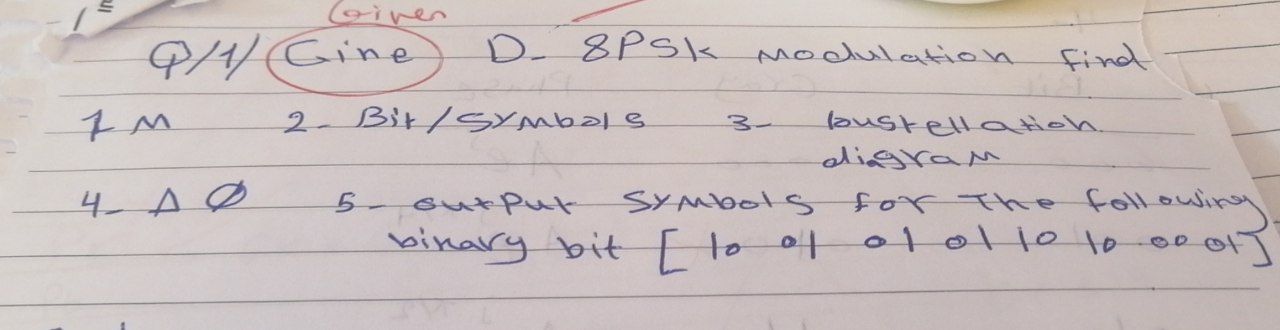 Given
Q/1/ Gine D- 8PSK Modulation find
1 M 2- Bit/symbols 3- constellation
diagram
4- Δ Ø 5- output symbols for The following
binary bit [ 10 01 01 01 10 10 00 01 ]